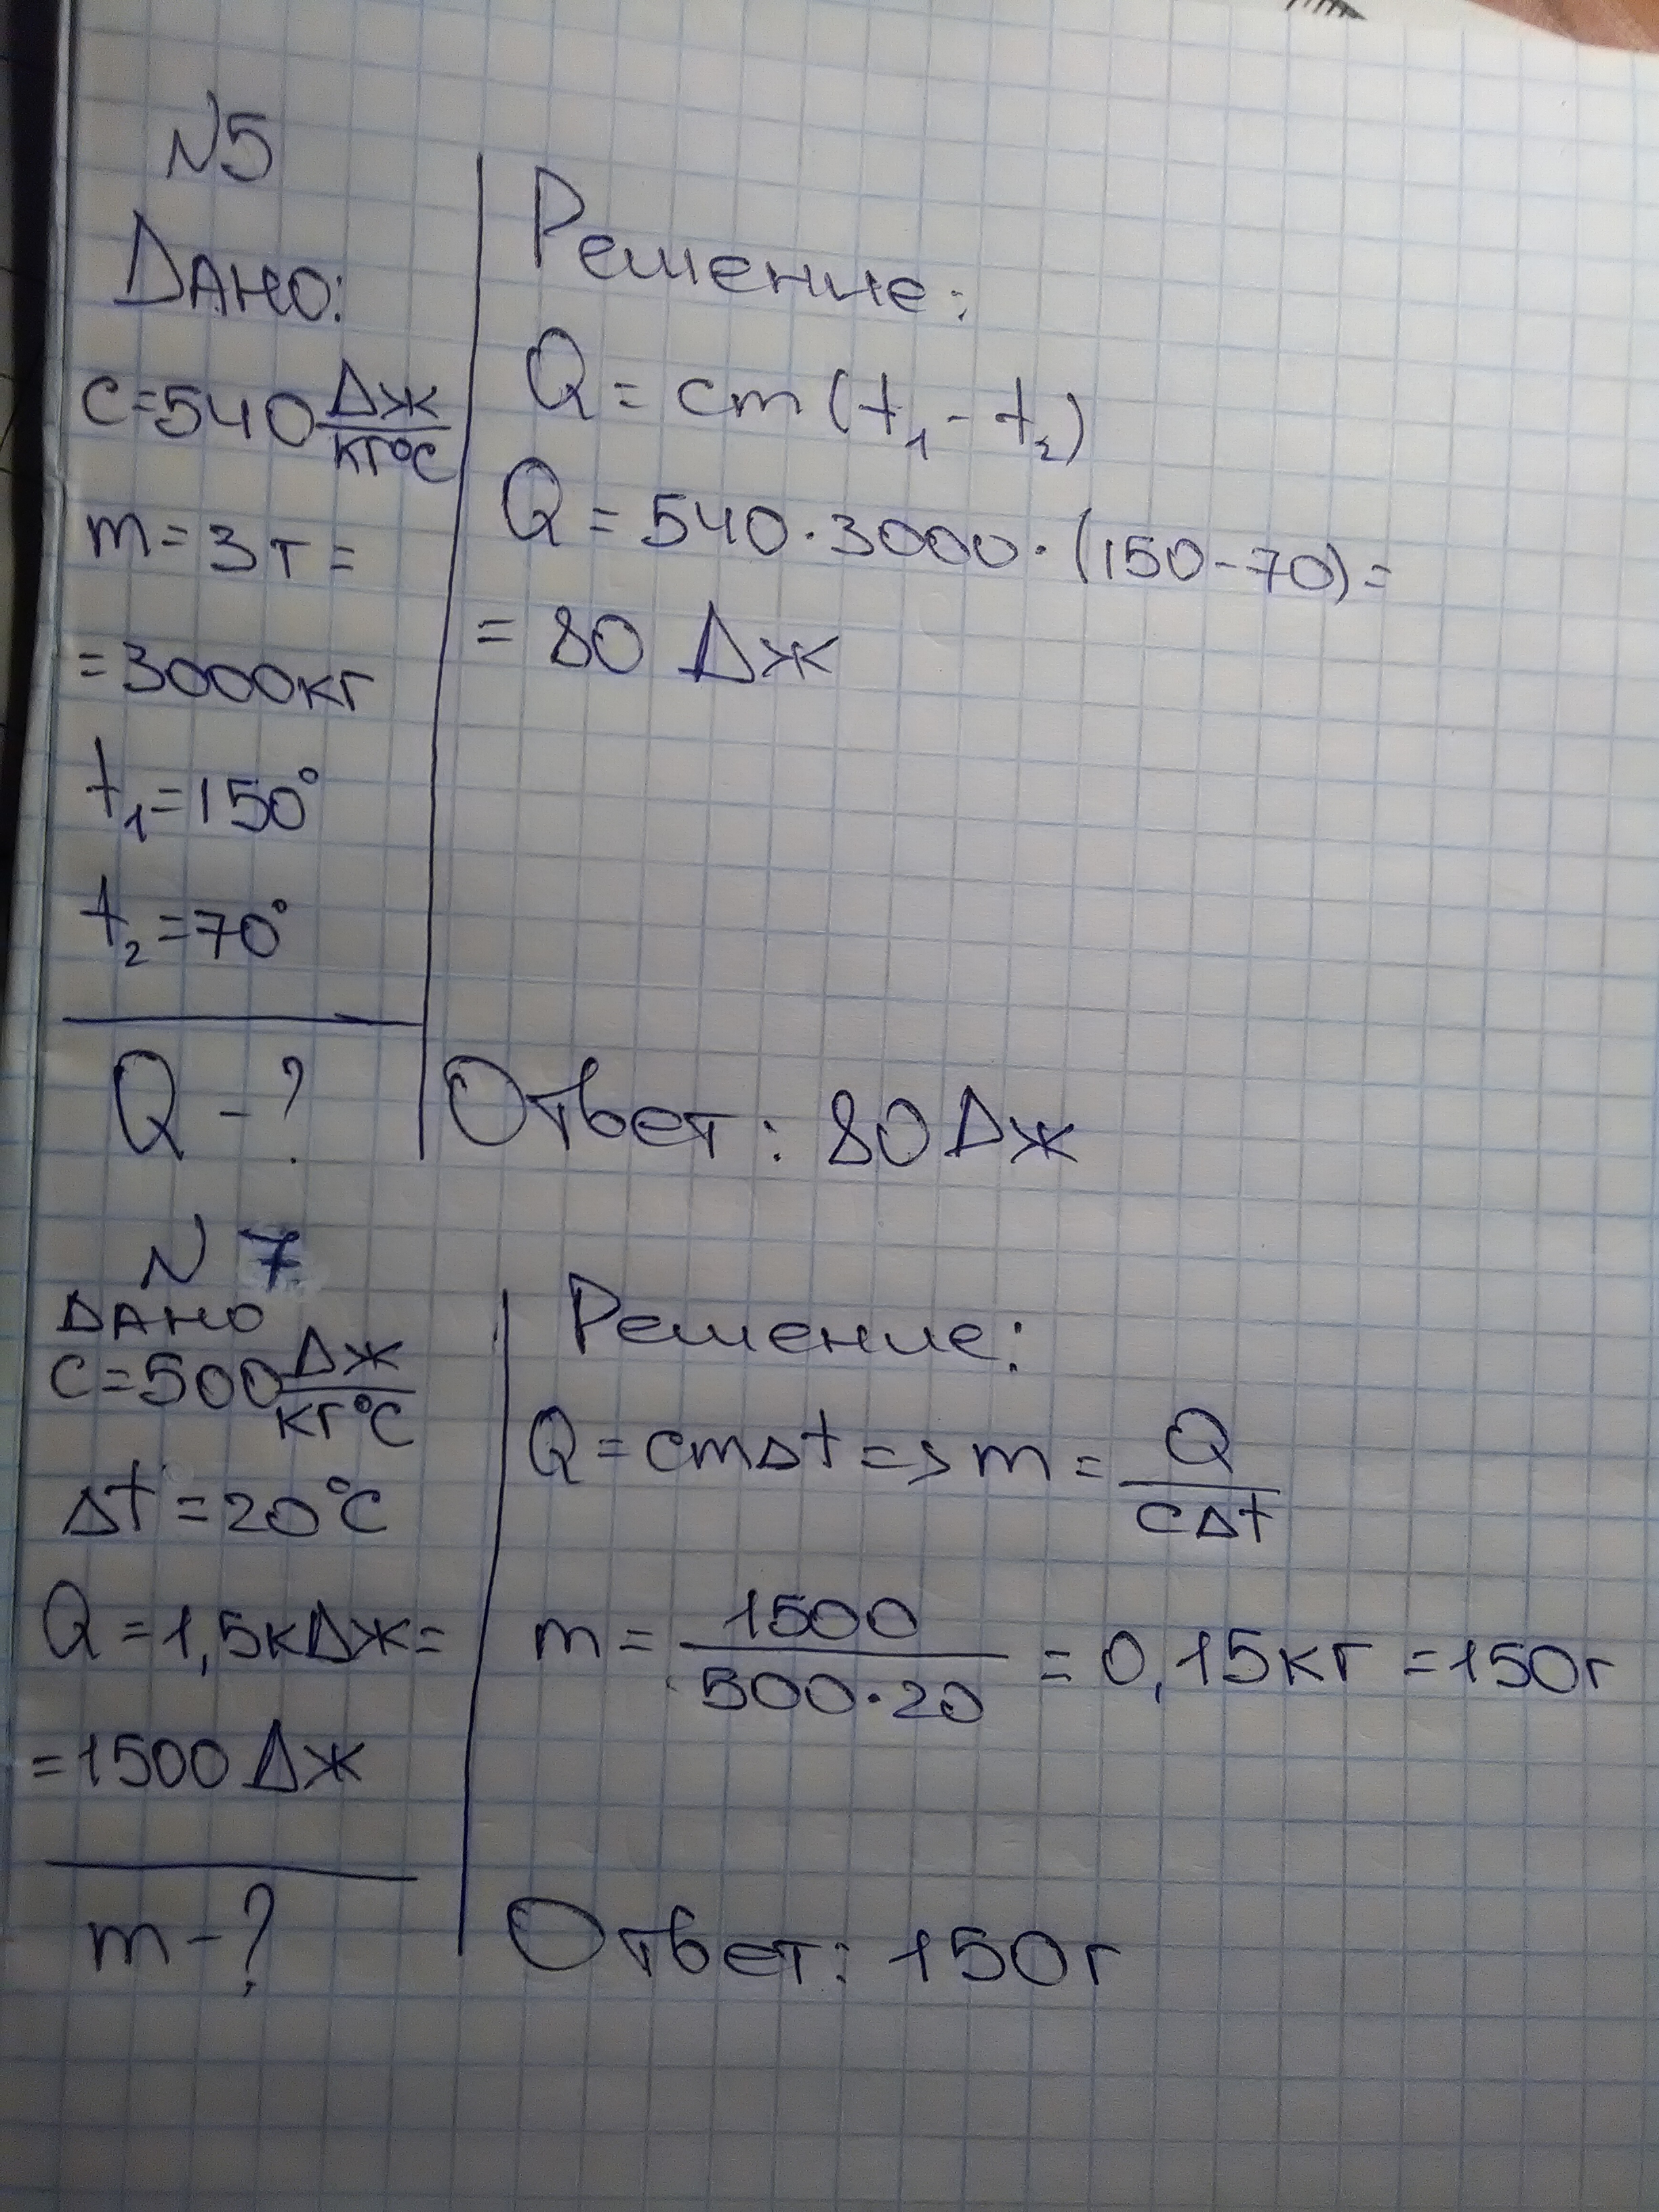 N5
Дано:
c=540 Дж/кг°С
m=3т=
=3000кг
t₁=150°
t₂=70°
Q-?
Решение:
Q=cm(t₁-t₂)
Q=540·3000·(150-70)=
=80 Дж
Ответ: 80 Дж
N 7
Дано
c=500 Дж/кг°С
Δt=20°С
Q=1,5кДж=
=1500 Дж
m-?
Решение:
Q=cmΔt=>m=Q/cΔt
m=1500/500·20=0,15кг=150г
Ответ: 150г